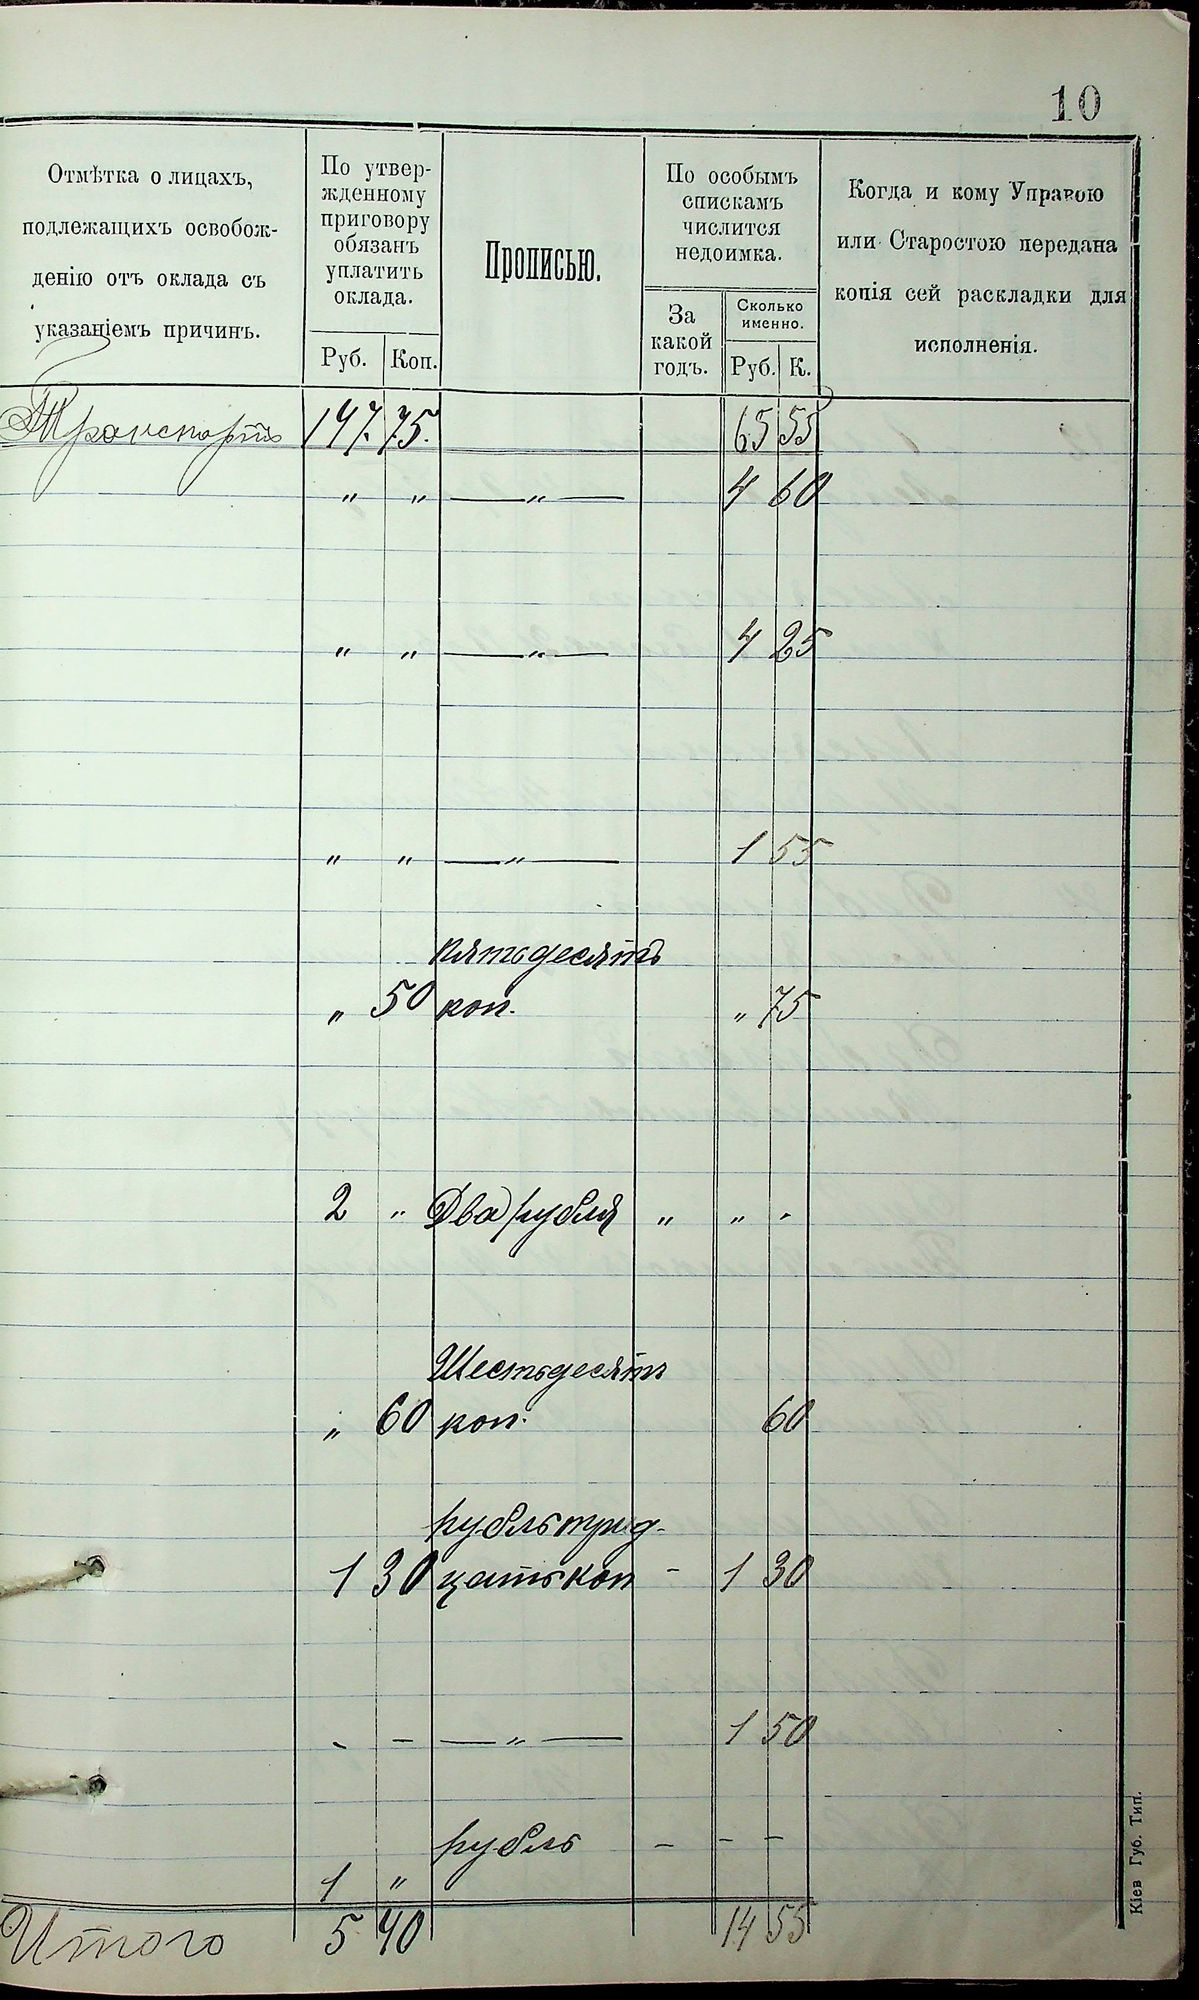 10
Отмѣтка о лицахъ,
подлежащихъ освобож-
денію отъ оклада съ
указаніемъ причинъ.
По утвер-
жденному
приговору
обязанъ
уплатить
оклада.
Руб. Коп.
Прописью.
По особымъ
спискамъ
числится
недоимка.
За
какой
годъ.
Сколько
именно.
Руб. К.
Когда и кому Управою
или Старостою передана
копія сей раскладки для
исполненія.
Транспортъ 147. 75. 65 55
„ „ — „ — 4 60
„ „ — „ — 4 25
„ „ — „ — 1 55
пятьдесятъ
„ 50 коп. „ 75
2 „ Два рубля „ „ „
Шестьдесятъ
„ 60 коп. 60
рубль трид-
1 30 цать коп - 1 30
- - — „ — 1 50
рубль - - -
1 „
Итого 5 40 14 55
Кіев Губ. Тип.